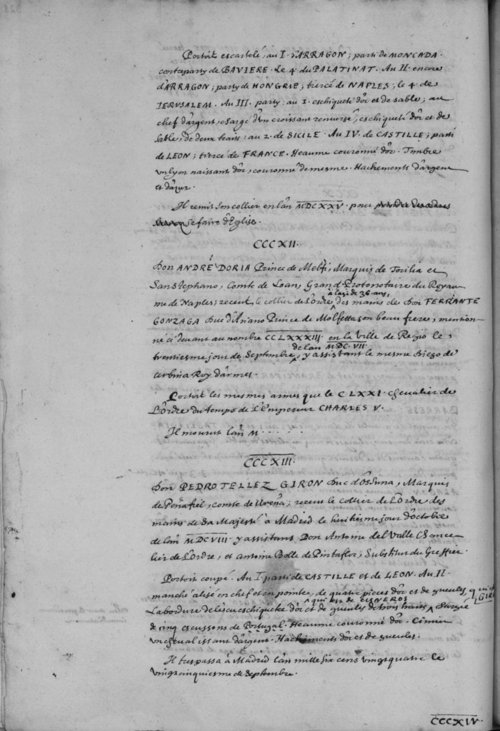 Portoit escartelé, au I. d'ARRAGON; parti de MONCADA.
contreparty de BAVIERE. Le 4 du PALATINAT. Au II encore
d'ARRAGON; party de HONGRIE; tiercé de NAPLES; le 4 de
IERUSALEM. Au III. party; au 1. eschiqueté d'or et de sable; au
chef d'argent, chargé d'un croissant renversé, eschiqueté d'or et de
sable, de deux traits; au 2. de SICILE. Au IV. de CASTILLE; parti
de LEON; tiercé de FRANCE. Heaume couronné d'or. Timbre
un lyon naissant d'or, couronné de mesme. Hachements d'argent
et d'azur.
Il remit son collier en l'an MDCXXV. pour
se faire d'Eglise.
CCCXII.
Don ANDRÉ DORIA Prince de Melfi, Marquis de et
San Stephano, Comte de Loan, Grand Protonotaire du Royau-
me de Naples; receut le collier de l'Ordre, des mains de Don FERRANTE
à l'age de 36 ans,
GONZAGA Duc d'Ariano Prince de Molfetta son beau frere, mention-
né cy devant au nombre CCLXXXIII. en la ville de le
trentiesme jour de Septembre, y assistant le mesme Diego de
de l'an MDC.VII.
Urbina Roy d'armes.
Portoit les mesmes armes que le CLXXI. chevalier de
l'Ordre du temps de l'Empereur CHARLES V.
Il mourut l'an M.
CCCXIII.
Don PEDRO TELLEZ GIRON Duc d'Ossuna, Marquis
de Penafiel, comte de Urena; receut le collier de l'Ordre des
mains de Sa Majesté à Madrid le huitiesme jour d'Octobre
de l'an MDCVIII. y assistans Don Antoine del Valle Chance-
lier de l'Ordre, et Antoine Bolle de Pintaflor, Substitut du Greffier.
Portoit coupé. Au I. parti de CASTILLE et de LEON. Au II.
manché, alisé en chef et en pointe, de quatre pieces d'or et de gueules,
qui est de CISNEROS
La bordure de l'escu eschiquetée d'or et de gueules de trois traits, chargée
de cinq escussons de Portugal. Heaume couronné d'or. Cimier
un cheval issant d'argent. Hachements d'or et de gueules.
Il trespassa à Madrid l'an mille six cens vingt quatre le
vingt cinquiesme de Septembre.
CCCXIV.